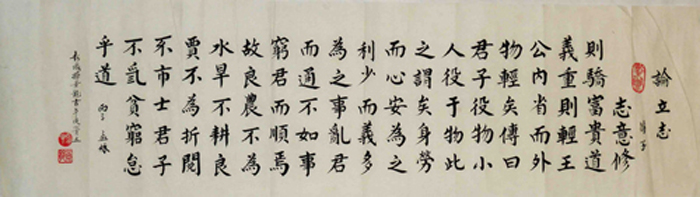 論立志
荀子
志意修
則驕富貴道
義重則輕王
公內省而外
物輕矣傳曰
君子役物小
人役于物此
之謂矣身勞
而心安為之
利少而義多
為之事亂君
而通不如事
窮君而順焉
故良農不為
水旱不耕良
賈不為折閱
不市士君子
不為貧窮怠
乎道
丙子